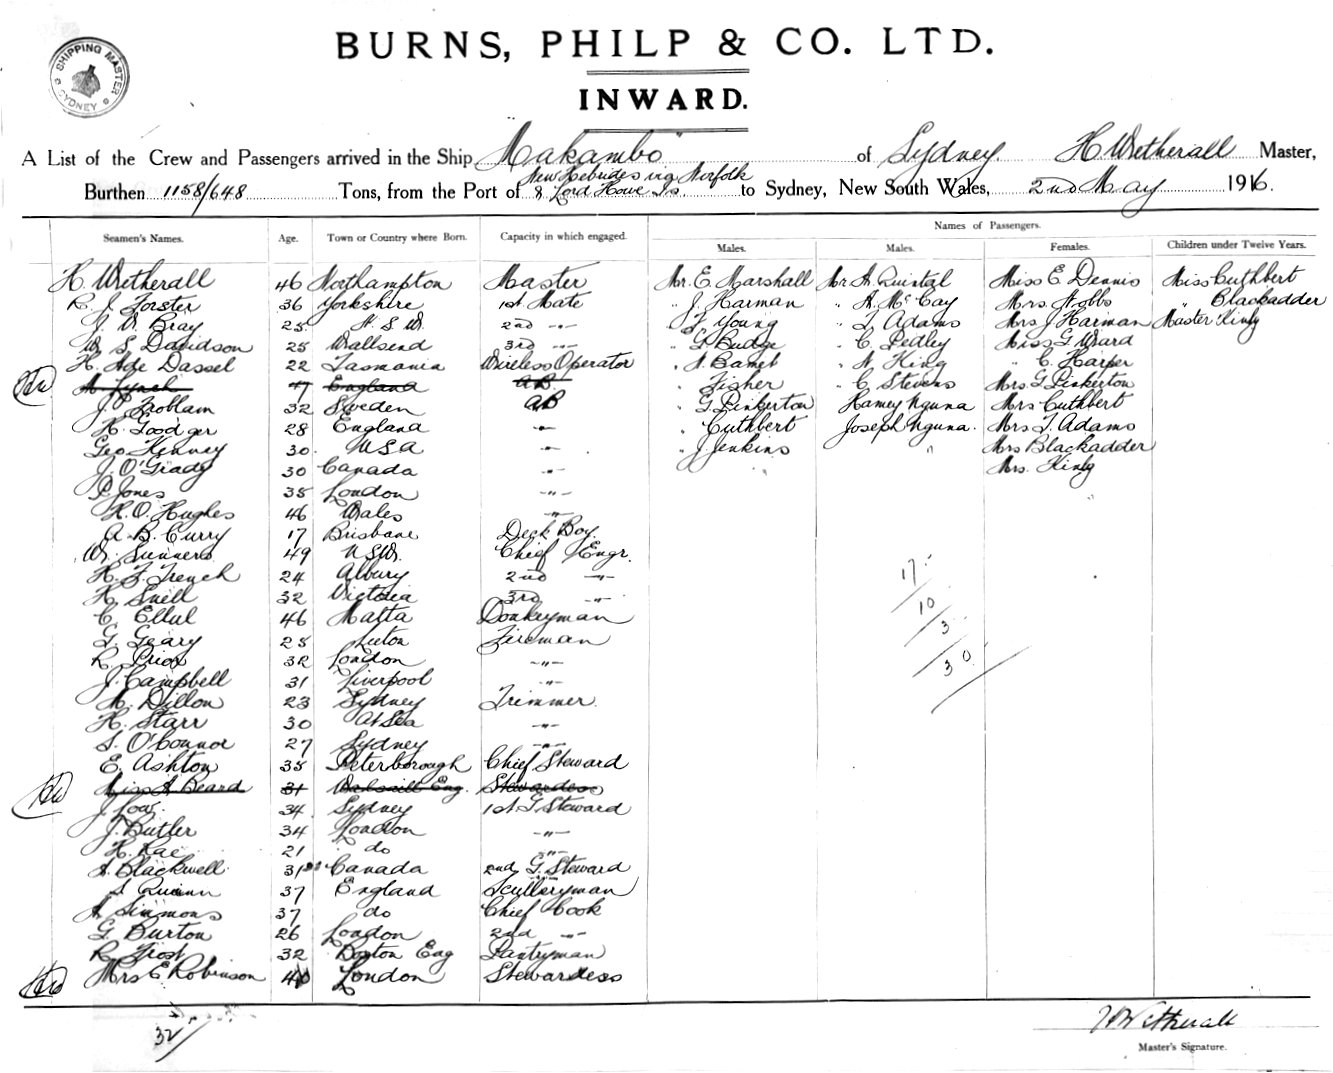 SHIPPING MASTER
SYDNEY
BURNS, PHILP & CO. LTD.
INWARD.
A List of the Crew and Passengers arrived in the Ship Makambo of Sydney. H Wetherall Master,
New Hebrides via Norfolk
Burthen 1158/648 Tons, from the Port of & Lord Howe Is. to Sydney, New South Wales, 2nd May 1916.
Names of Passengers.
Seamen's Names. Age. Town or Country where Born. Capacity in which engaged. Males. Males. Females. Children under Twelve Years.
H. Wetherall 46 Northampton Master Mr. E. Marshall Mr A. Quintal Miss E. Dennis Miss Cuthbert
R. J. Forster 36 Yorkshire 1st Mate " J. Harman " A. McCay Mrs. Hobbs " Blackadder
J. W. Bray 25 N.S.W. 2nd -"- " F Young " T Adams Mrs J Harman Master King
W. S. Davidson 25 Wallsend 3rd -"- " G Budge " C. Pedley Miss G Ward
H. Dassel 22 Tasmania Wireless Operator " " King " C. Harper
M. Lynch 47 England AB. " Fisher " C Stevens Mrs. G Pinkerton
J. Froblam 32 Sweden AB " G Pinkerton Hamey Nguna Mrs Cuthbert
H. Goodger 28 England -"- " Cuthbert Joseph Nguna. Mrs T. Adams
Geo Kenney 30. USA -"- " J Jenkins " Mrs Blackadder
J. O'Grady 30 Canada -"- Mrs. King
P. Jones 35 London -"-
H. O. Hughes 46 Wales -"-
A. B. Curry 17 Brisbane Deck Boy.
W. Sunners 49 N.S.W. Chief Engr.
H. F. French 24 Albury 2nd -"-
H. Snell 32 Victoria 3rd -"-
C. Ellul 46 Malta Donkeyman
G. Geary 25 Luton Fireman
R. Prior 32 London -"-
J. Campbell 31 Liverpool -"-
M. Dillon 23 Sydney Trimmer.
H. Starr 30 At Sea -"-
S. O'Connor 27 Sydney -"-
E. Ashton 35 Peterborough Chief Steward
Miss A Beard 31 Eng. Stewardess
J. Low. 34 Sydney 1st G Steward
J. Butler 34 London -"-
H. Rae 21 do -"-
A. Blackwell 31 Canada 2nd G. Steward
S. Quinn 37 England Sculleryman
A. Simmons 37 do Chief Cook
G. Burton 26 London 2nd -"-
R. Frost 32 Boston Eng Pantryman
Mrs E Robinson 40 London Stewardess
17
10
3
30
32
H Wetherall
Master's Signature.